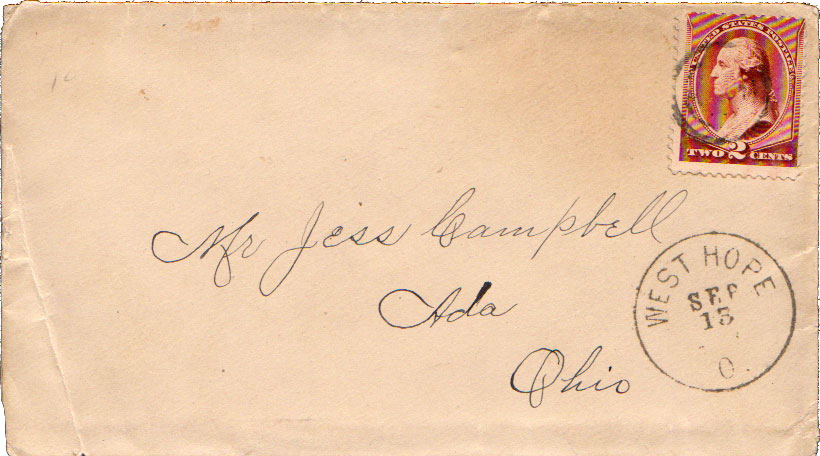 UNITED STATES POSTAGE
TWO 2 CENTS
Mr Jess Campbell
Ada
Ohio
WEST HOPE
SEP
15
O.